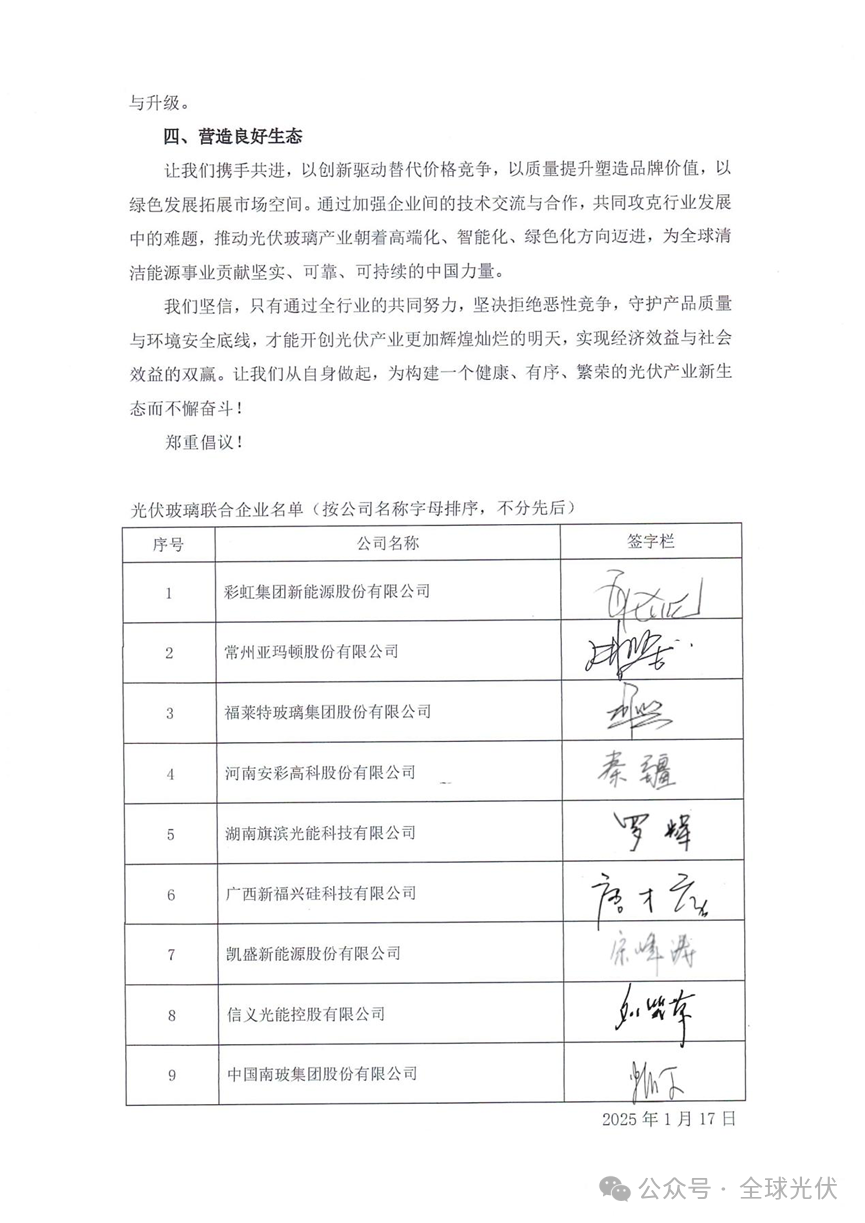 与升级。
四、营造良好生态
让我们携手共进，以创新驱动替代价格竞争，以质量提升塑造品牌价值，以
绿色发展拓展市场空间。通过加强企业间的技术交流与合作，共同攻克行业发展
中的难题，推动光伏玻璃产业朝着高端化、智能化、绿色化方向迈进，为全球清
洁能源事业贡献坚实、可靠、可持续的中国力量。
我们坚信，只有通过全行业的共同努力，坚决拒绝恶性竞争，守护产品质量
与环境安全底线，才能开创光伏产业更加辉煌灿烂的明天，实现经济效益与社会
效益的双赢。让我们从自身做起，为构建一个健康、有序、繁荣的光伏产业新生
态而不懈奋斗！
郑重倡议！
光伏玻璃联合企业名单（按公司名称字母排序，不分先后）
序号 公司名称 签字栏
1 彩虹集团新能源股份有限公司
2 常州亚玛顿股份有限公司
3 福莱特玻璃集团股份有限公司
4 河南安彩高科股份有限公司 秦疆
5 湖南旗滨光能科技有限公司 罗烽
6 广西新福兴硅科技有限公司
7 凯盛新能源股份有限公司
8 信义光能控股有限公司
9 中国南玻集团股份有限公司
2025 年 1 月 17 日
公众号 · 全球光伏